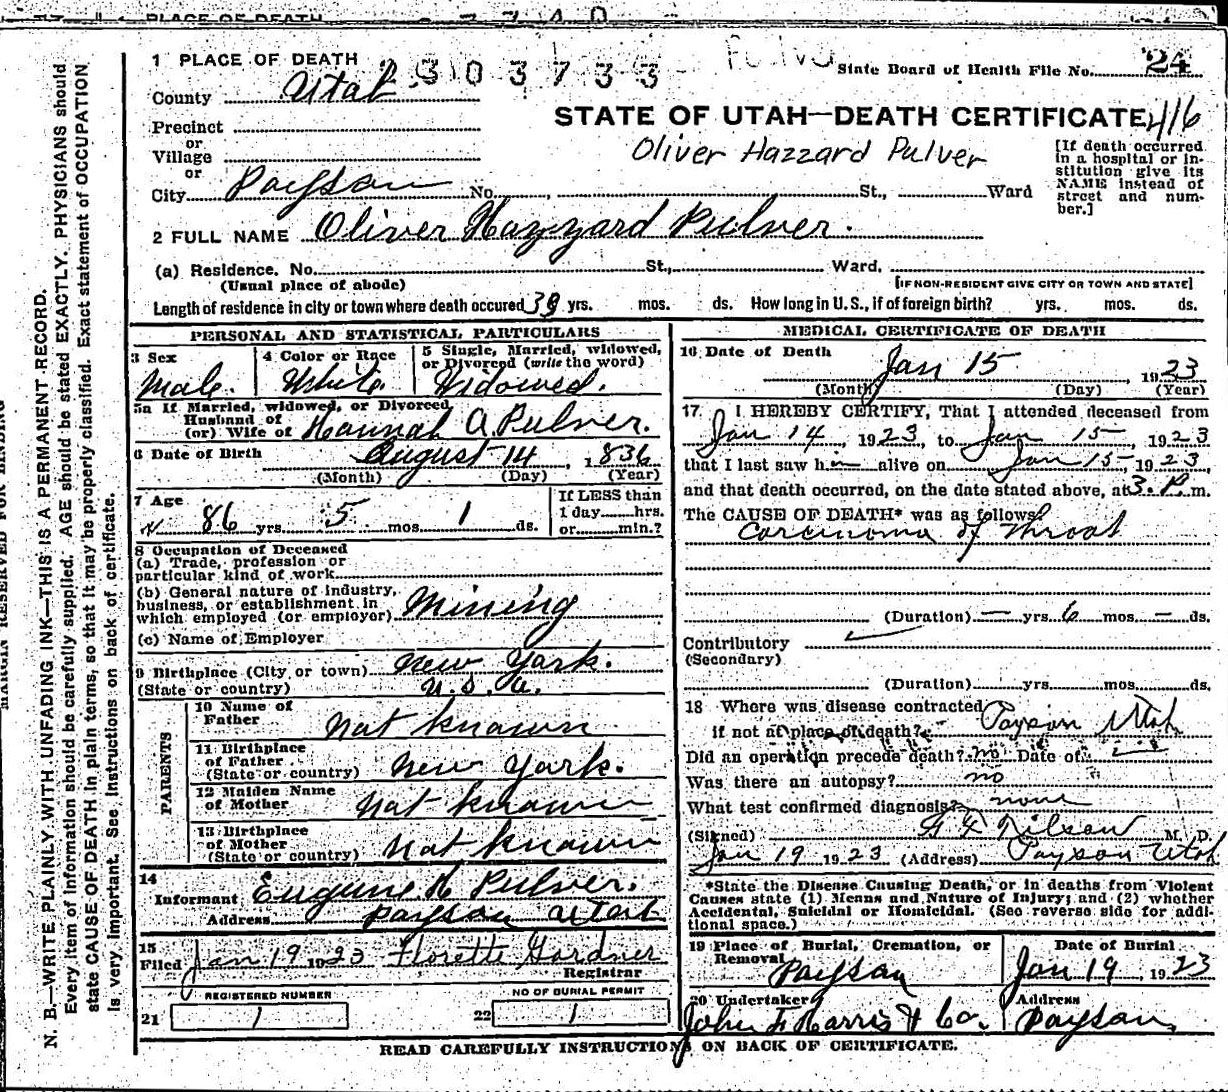 PLACE OF DEATH
1 PLACE OF DEATH
2303733
State Board of Health File No. 24
County Utah
STATE OF UTAH—DEATH CERTIFICATE 416
Precinct
or
Village
or
Oliver Hazzard Pulver
[If death occurred in a hospital or institution give its NAME instead of street and number.]
City Payson No. St., Ward
2 FULL NAME Oliver Hazzard Pulver.
(a) Residence. No. St., Ward.
(Usual place of abode)
[IF NON-RESIDENT GIVE CITY OR TOWN AND STATE]
Length of residence in city or town where death occured 39 yrs. mos. ds. How long in U.S., if of foreign birth? yrs. mos. ds.
PERSONAL AND STATISTICAL PARTICULARS
3 Sex
Male.
4 Color or Race
White
5 Single, Married, widowed, or Divorced (write the word)
Widowed.
5a If Married, widowed, or Divorced
Husband of
(or) Wife of Hannah A Pulver.
6 Date of Birth August 14, 1836
(Month) (Day) (Year)
7 Age
86 yrs. 5 mos. 1 ds.
If LESS than
1 day hrs.
or min.?
8 Occupation of Deceased
(a) Trade, profession or
particular kind of work
(b) General nature of industry,
business, or establishment in
which employed (or employer) Mining
(c) Name of Employer
9 Birthplace (City or town) New York.
(State or country) U.S.A.
PARENTS
10 Name of
Father Not known
11 Birthplace
of Father
(State or country) New York.
12 Maiden Name
of Mother Not known
13 Birthplace
of Mother
(State or country) Not known
14
Informant Eugune H Pulver.
Address Payson Utah
15
Filed Jan 19 1923 Florette Gardner
Registrar
REGISTERED NUMBER
21 1
NO OF BURIAL PERMIT
22 1
MEDICAL CERTIFICATE OF DEATH
16 Date of Death Jan 15 1923
(Month) (Day) (Year)
17. I HEREBY CERTIFY, That I attended deceased from
Jan 14, 1923, to Jan 15, 1923
that I last saw him alive on Jan 15, 1923,
and that death occurred, on the date stated above, at 3. P. m.
The CAUSE OF DEATH* was as follows:
Carcinoma of Throat
(Duration) — yrs 6 mos — ds.
Contributory
(Secondary)
(Duration) yrs mos ds.
18 Where was disease contracted
if not at place of death? Payson Utah
Did an operation precede death? no Date of
Was there an autopsy? no
What test confirmed diagnosis? none
(Signed) Nilson M. D.
Jan 19 1923 (Address) Payson Utah
*State the Disease Causing Death, or in deaths from Violent
Causes state (1) Means and Nature of Injury; and (2) whether
Accidental, Suicidal or Homicidal. (See reverse side for additional space.)
19 Place of Burial, Cremation, or
Removal
Payson
Date of Burial
Jan 19, 1923
20 Undertaker
John F Harris & Co.
Address
Payson
READ CAREFULLY INSTRUCTIONS ON BACK OF CERTIFICATE.
MARGIN RESERVED FOR BINDING
N. B.—WRITE PLAINLY WITH UNFADING INK—THIS IS A PERMANENT RECORD.
Every item of information should be carefully supplied. AGE should be stated EXACTLY. PHYSICIANS should
state CAUSE OF DEATH in plain terms, so that it may be properly classified. Exact statement of OCCUPATION
is very important. See instructions on back of certificate.